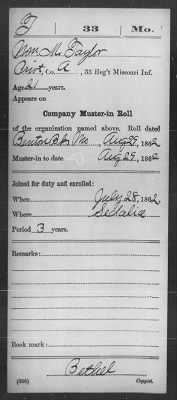 T 33 Mo.
Wm M. Taylor
Privt, Co. A, 33 Reg't Missouri Inf.
Age 21 years.
Appears on
Company Muster-in Roll
of the organization named above. Roll dated
Benton Bks Mo, Aug 29, 1862
Muster-in to date Aug 29, 1862
Joined for duty and enrolled:
When July 28, 1862
Where Sedalia
Period 3 years.
Remarks:
Book mark:
Bethel
(356) Copyist.